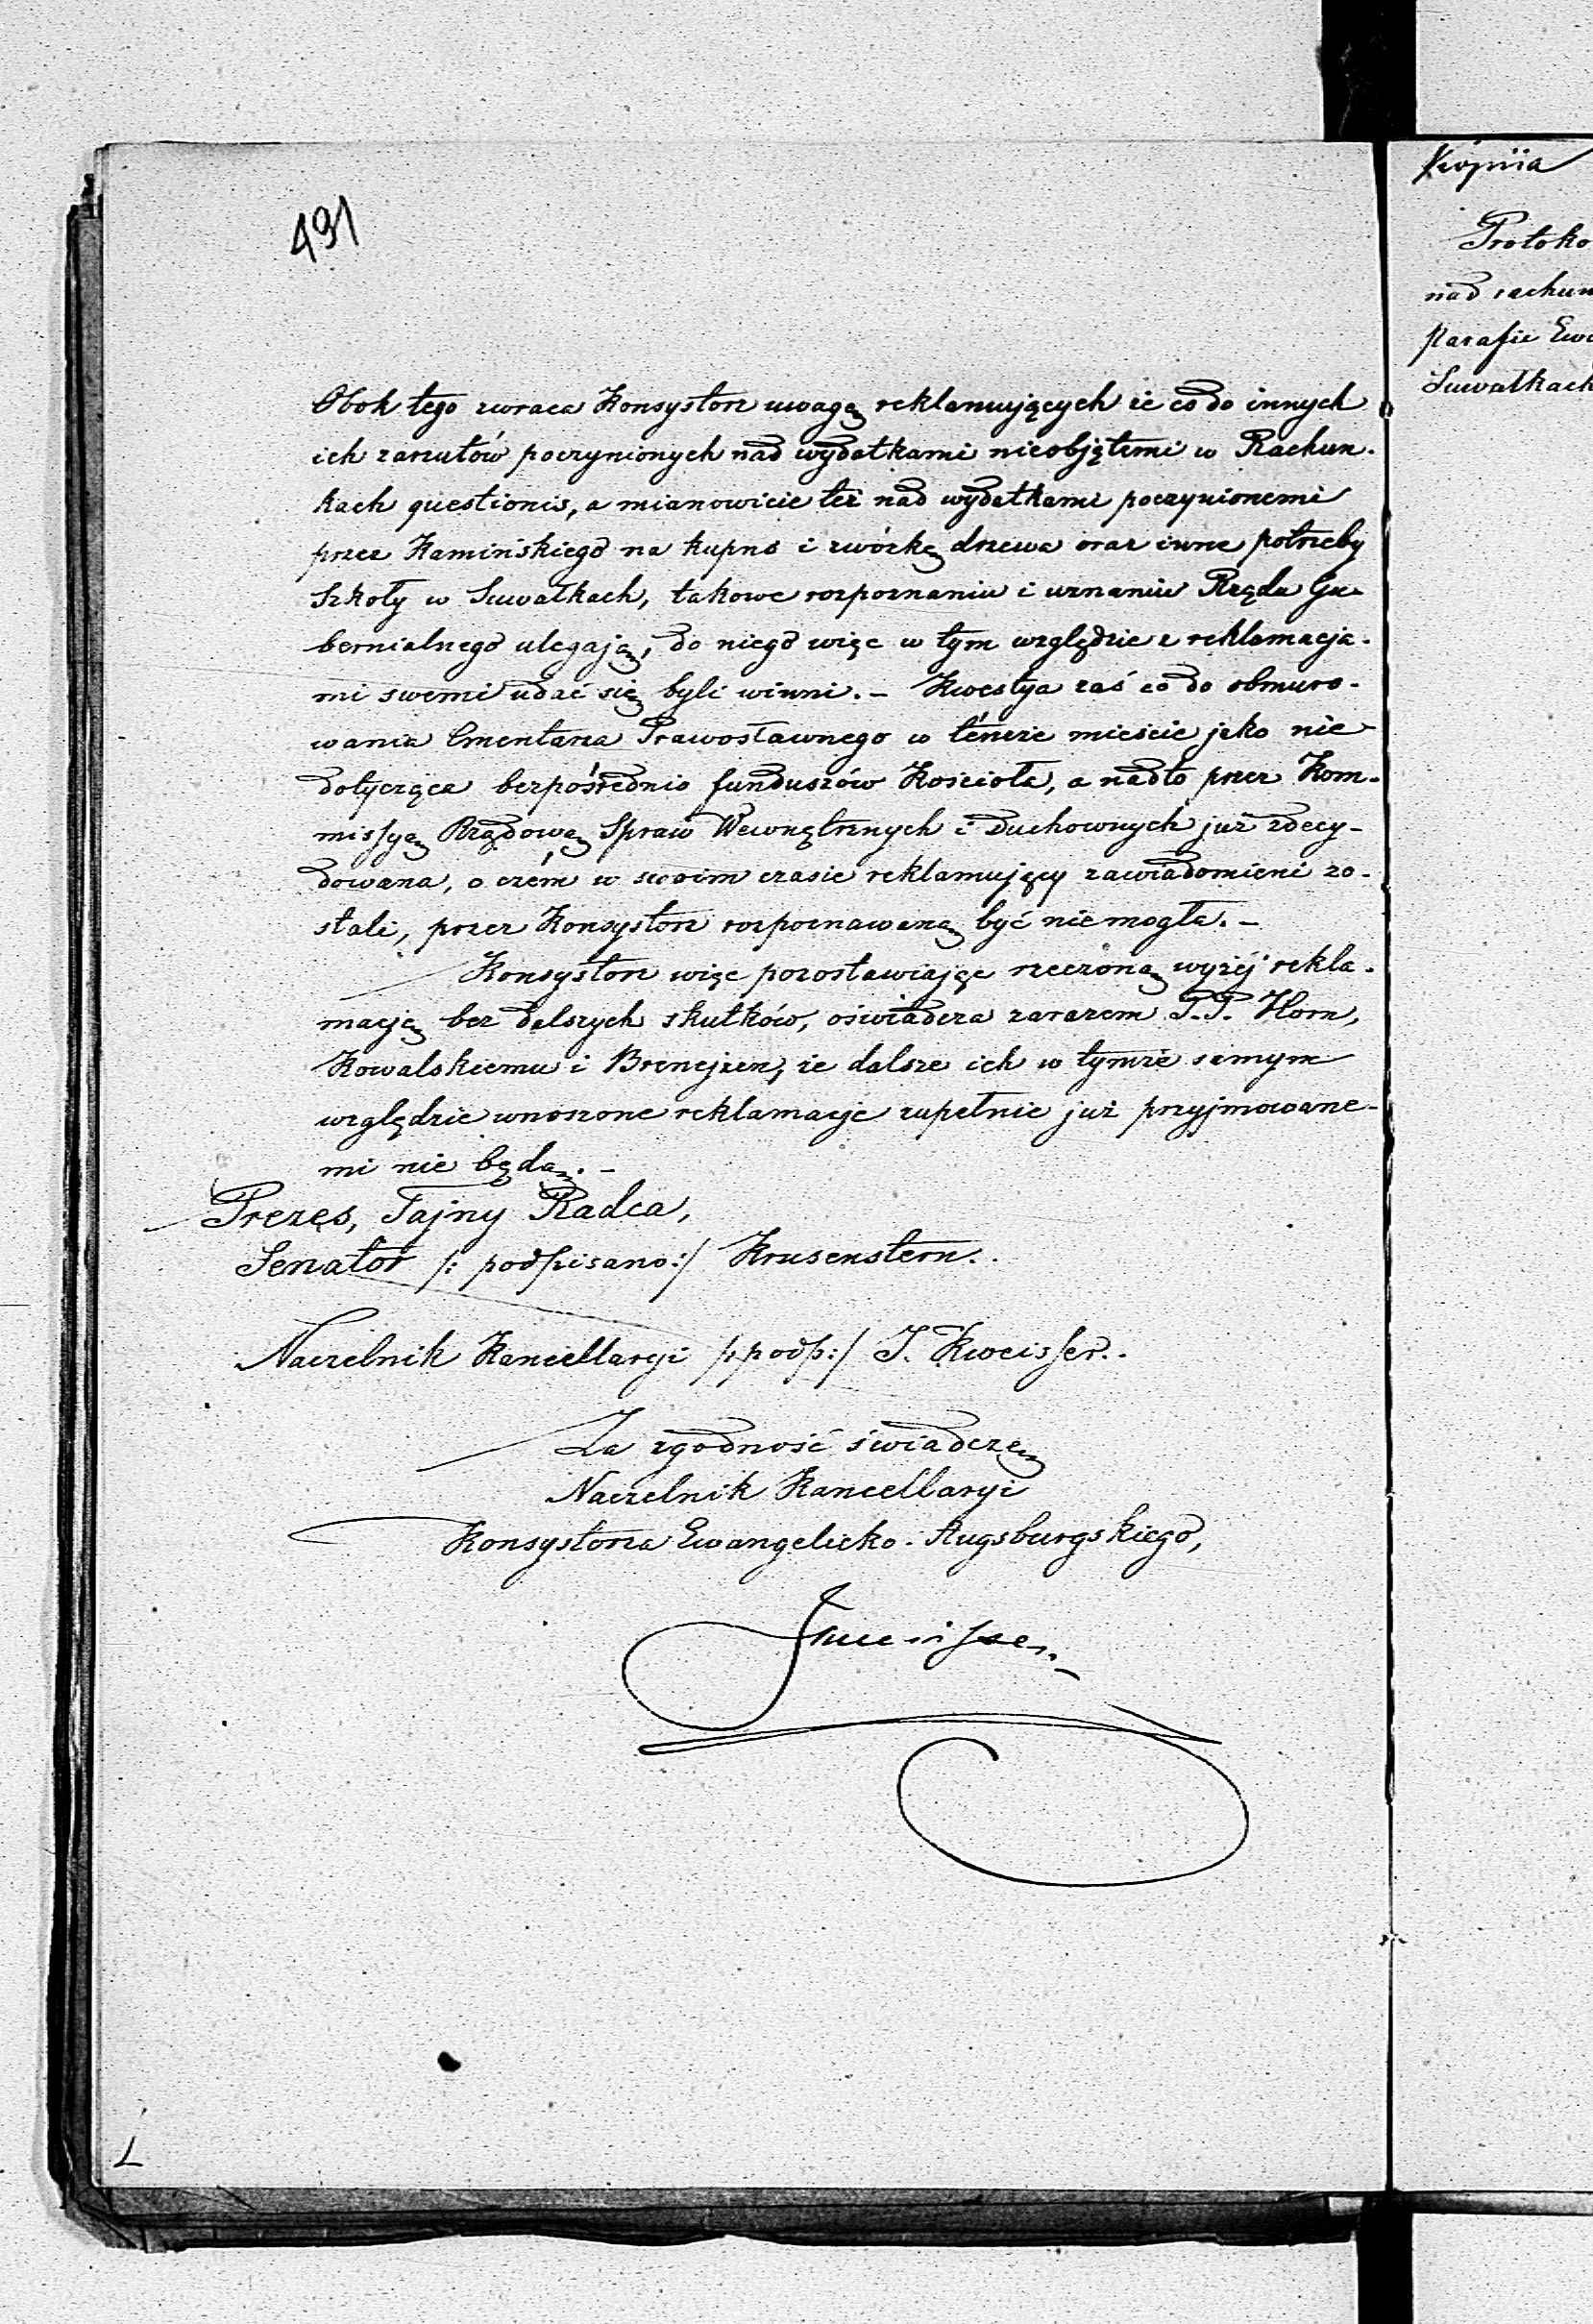 491
Obok tego zwraca Konsystorz uwagę reklamujących że co do innych
ich zarzutów poczynionych nad wydatkami nieobjętemi w Rachun-
kach questionis, a mianowicie też nad wydatkami poczynionemi
przez Kamińskiego na kupno i zwózkę drzewa oraz inne potrzeby
Szkoły w Suwałkach, takowe rozpoznaniu i uznaniu Rządu Gu-
bernialnego ulegają, do niego więc w tym względzie z reklamacja-
mi swemi udać się byli winni. –   Kwestya zaś co do obmuro-
wania Cmentarza Prawosławnego w témże mieście jako nie
dotycząca bezpośrednio funduszów Kościoła, a nadto przez Kom-
missyą Rządową Spraw Wewnętrznych i Duchownych już zdecy-
dowana, o czém w swoim czasie reklamujący zawiadomieni zo-
stali, przez Konsystorz rozpoznawaną być nie mogła. –
Konsystorz więc pozostawiając rzeczoną wyżéj rekla-
macją bez dalszych skutków, oświadcza zarazem P.P. Horn,
Kowalskiemu i Brenejzen, że dalsze ich w tymże samym
względzie wnoszone reklamacje zupełnie już przyjmowane-
mi nie będą. –
Prezes, Tajny Radca,
Senator /: podpisano :/ Krusenstern.
Naczelnik Kancellaryi /: podp :/ J. Kweisser.
Za zgodność świadczę
Naczelnik Kancellaryi
Konsystorza Ewangelicko-Augsburgskiego,
L
Kopiia
Protoko
nad rachun
Parafie Ewa
Suwałkach